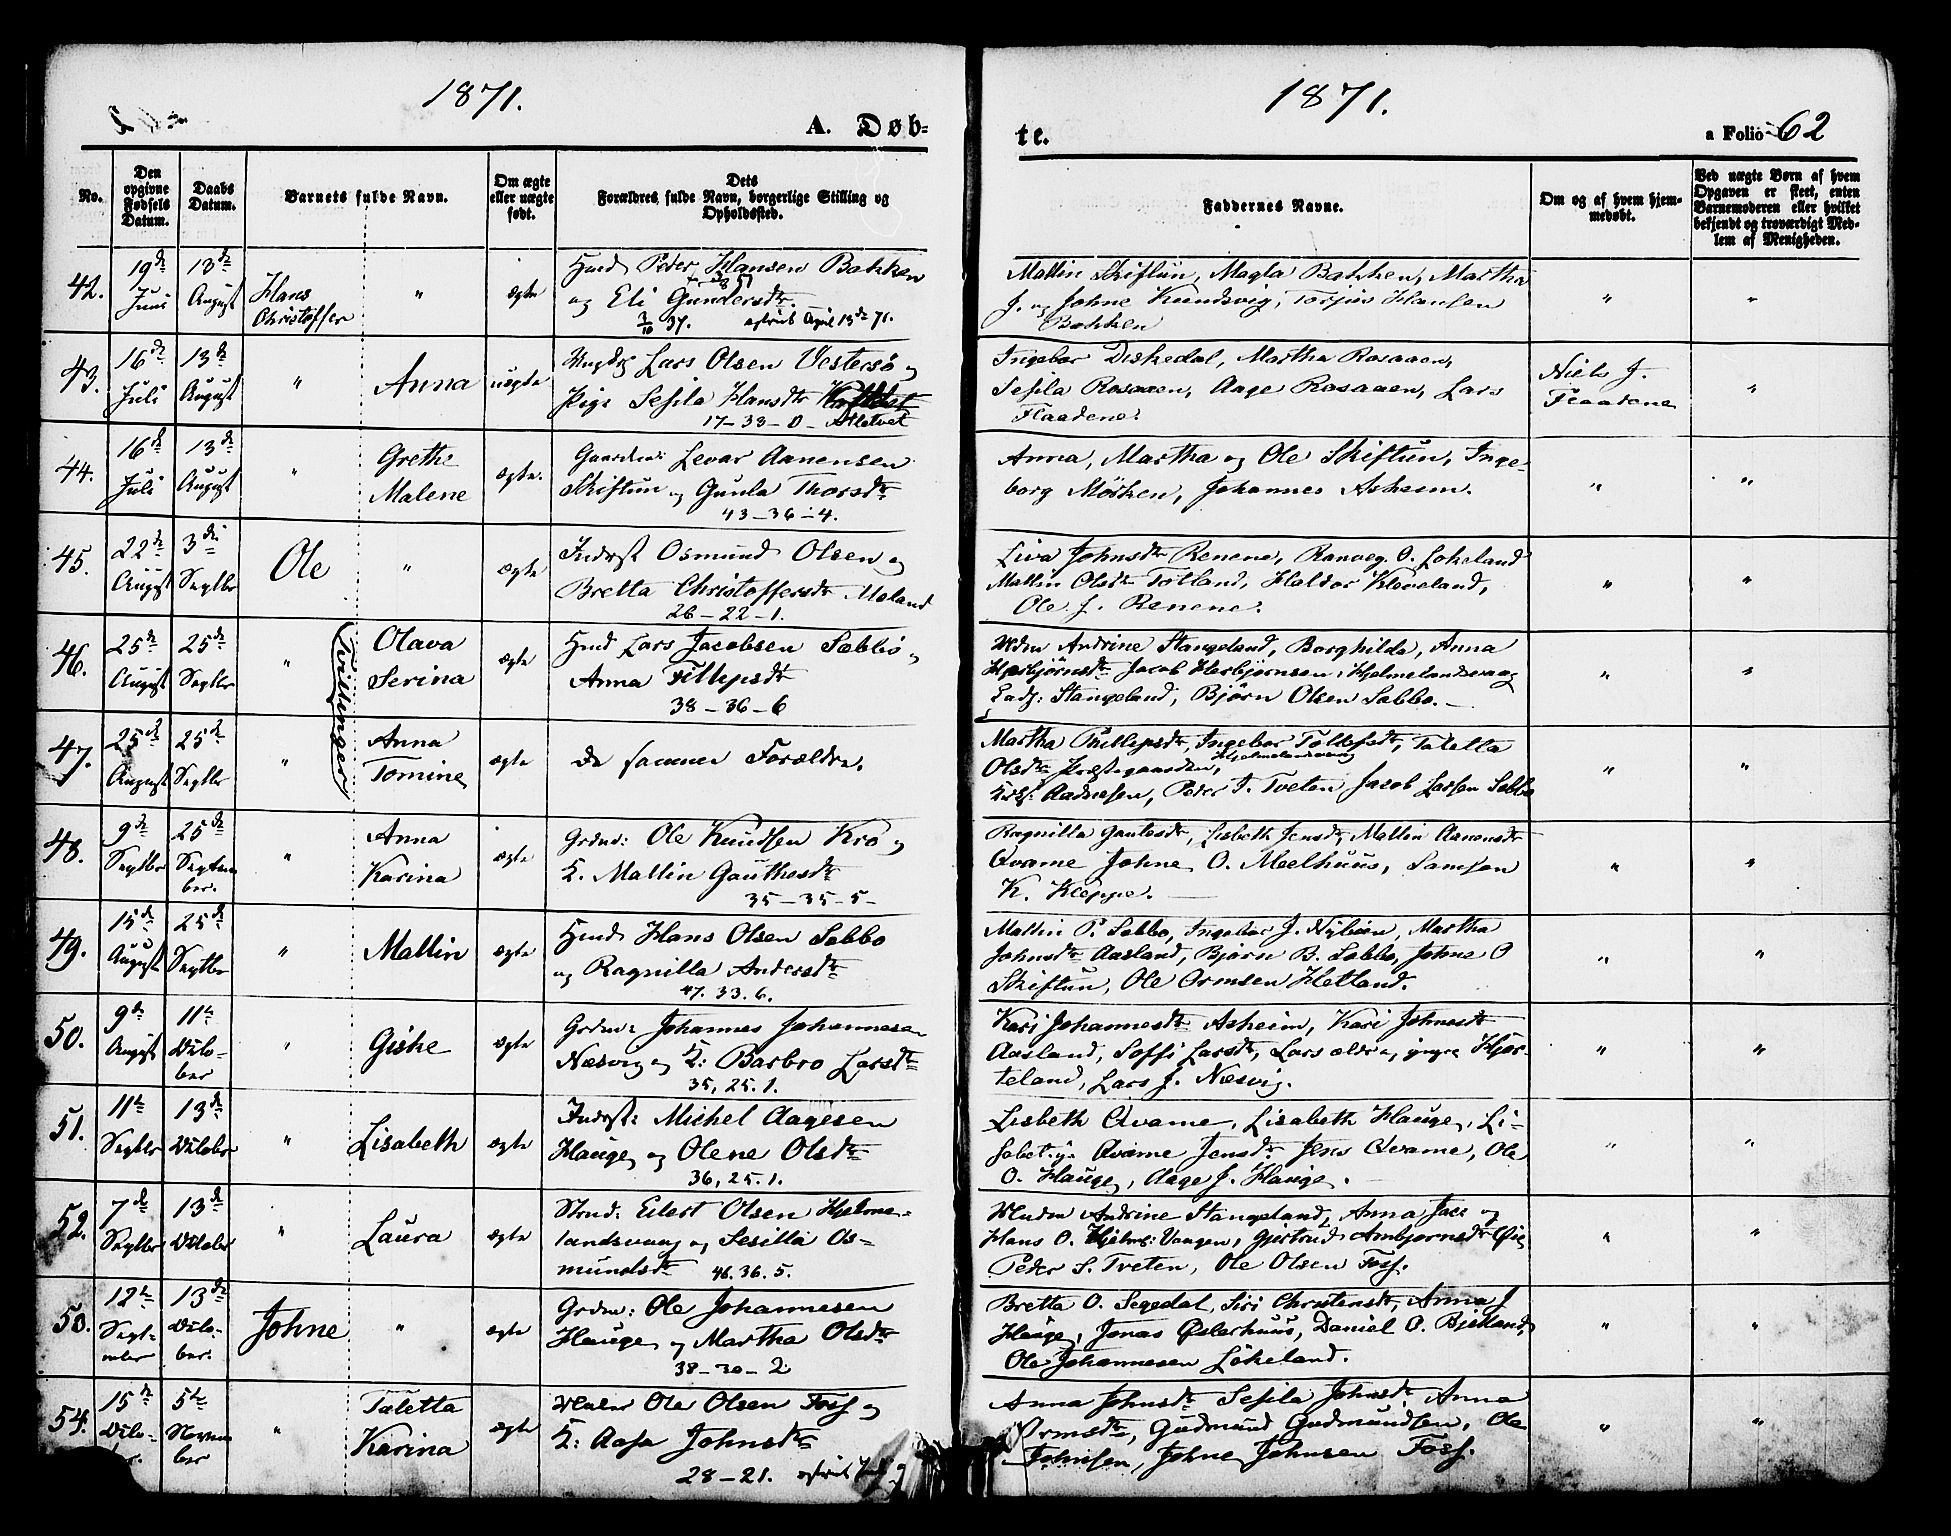 1871.
A. Døb-
No.
Den opgivne Fødsels Datum.
Daabs Datum.
Barnets fulde Navn.
Om ægte eller uægte født.
Dets Forældres fulde Navn, borgerlige Stilling og Opholdssted.
42. 19de Juni 13de August Hans Christoffer " ægte
Hmd Peder Hansen Bakken
og Eli Gundersdtr.
37. April 13de 71.
43. 16de Juli 13de August " Anna uægte
Ungkg Lars Olsen Vestersø og
Pige Sesila Hansdtr
17-33-0-
44. 16de Juli 13de August " Grethe Malene ægte.
Gaardm: Levar Aanensen
Skiftun og Gunla Thorsdtr
43-36-4.
45. 22de August 3die Septbr Ole " ægte
Inderst Osmund Olsen og
Bretta Christoffersdtr Meland
26-22-1.
46. 25de August 25de Septbr " Olava Serina ægte
Tvillinger
Hmd Lars Jacobsen Sæbbø og
Anna Fillipsdtr
38-36-6
47. 25de August 25de Septbr " Anna Tomine ægte
de samme Forældre.
48. 9de Septbr 25de September " Anna Karina ægte
Grdm: Ole Knudsen Kro og
K. Mallin Gauthesdtr
35-35-5-
49. 15de August 25de Septbr " Mallin ægte
Hmd Hans Olsen Sæbbø
og Ragnilla Andersdtr
47. 33. 6.
50. 9de August 11te October " Giske ægte
Grdm: Johannes Johannesen
Næsvig og K: Barbro Larsdtr
35, 25. 1.
51. 11te Septbr 13de Octobr " Lisabeth ægte
Inderst: Michel Aagesen
Hauge og Olene Olsdtr
36, 25. 1.
52. 7de Septbr 13de Octobr " Laura ægte
Strnd: Eilert Olsen Hjelme-
landsvaag og Sesilla Os-
mundsdtr 46. 36. 5.
53. 12te September 13de October. Johne " ægte
Grdm: Ole Johannesen
Hauge og Martha Olsdtr
38-30-2
54. 15de October. 5te November " Taletta Karina ægte
Ole Olsen Foss og
K: Aasa Johnsdtr
28-21.
1871.
te.
a Folio 62
Faddernes Navne.
Om og af hvem hjem-
medøbt.
Ved uægte Børn af hvem
Opgaven er skeet, enten
Barnemoderen eller hvilket
bekjendt og troværdigt Med-
lem af Menigheden.
Mallin Skiftun, Magla Bakken, Martha
J. og Johne Kundsvig, Torjus Hansen
Bakken
" "
Ingebor Diskedal, Martha Rosaaen,
Sesila Rosaaen, Aage Rosaaen, Lars
Flaadene.
Niels J.
Flaadene
"
Anna, Martha og Ole Skiftun, Inge-
borg Mösken, Johannes Asheim.
" "
Liva Johnsdtr Renene, Ranveg O. Lokeland
Mallin Olsdtr Totland, Haldor Kleveland,
Ole J. Renene.
" "
Andrine Stangeland, Borghilda, Anna
Herbjörnsdtr Jacob Herbjörnsen, Hjelmelandsvaag
Stangeland, Björn Olsen Sæbbø.
" "
Martha Phillipsdtr, Ingebor Tollefsdtr, Taletta
Hjelmelandsvaag
Olsdtr Præstegaarden,
Aadnesen, Peder S. Tveten, Jacob Larsen Sæbbø
" "
Ragnilla Gautesdtr, Lisbeth Jensdtr, Mallin Aanensdtr
Qvame Johne O. Meelhuus, Samson
K. Kleppe.
" "
Mallin P. Sæbbø, Ingebor J. Nyböen, Martha
Johnsdtr Aasland, Bjørn B. Sæbbø, Johne O
Skiftun, Ole Ormsen Hetland.
" "
Kari Johannesdtr Asheim, Kari Johnsdtr
Aasland, Soffi Larsdtr, Lars ældre og yngre Hjor-
teland, Lars J. Næsvig.
" "
Lisbeth Qvame, Lisabeth Hauge, Li-
sabet Qvame Jensdtr Jens Qvame, Ole
O. Hauge, Aage J. Hauge.
" "
Andrine Stangeland, Anna og
Hans O. Hjelms: Vaagen, Gjertrud Ambjornsdtr Öie
Peder S. Tveten, Ole Olsen Foss.
" "
Bretta O. Segedal, Siri Christensdtr, Anna J
Hauge, Jonas Østerhuus, Daniel O. Bjelland,
Ole Johannesen Lökeland.
" "
Anna Johnsdtr Sesila Johnsdtr, Anna
Ormsdtr, Gudmund Gudmundsen, Ole
Johnsen, Johne Johnsen Foss.
" "